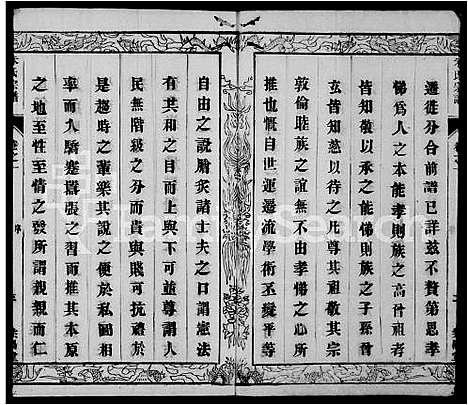 遷徙分合前譜已詳茲不贅第思孝
悌爲人之本能孝則族之高曾祖考
皆知敬以承之能悌則族之子孫曾
玄皆知慈以待之凡尊其祖敬其宗
敦倫睦族之誼無不由孝悌之心所
推也慨自世運遷流學術丕變平等
自由之說騰諸士夫之口謂憲法
有共和之目而上與下可並尊謂人
民無階級之分而貴與賤可抗禮於
是趨時之輩樂其說之便於私圖相
率而入驕蹇囂張之習而推其本原
之地至性至情之發所謂親親而仁
氏宗譜
卷之一
序